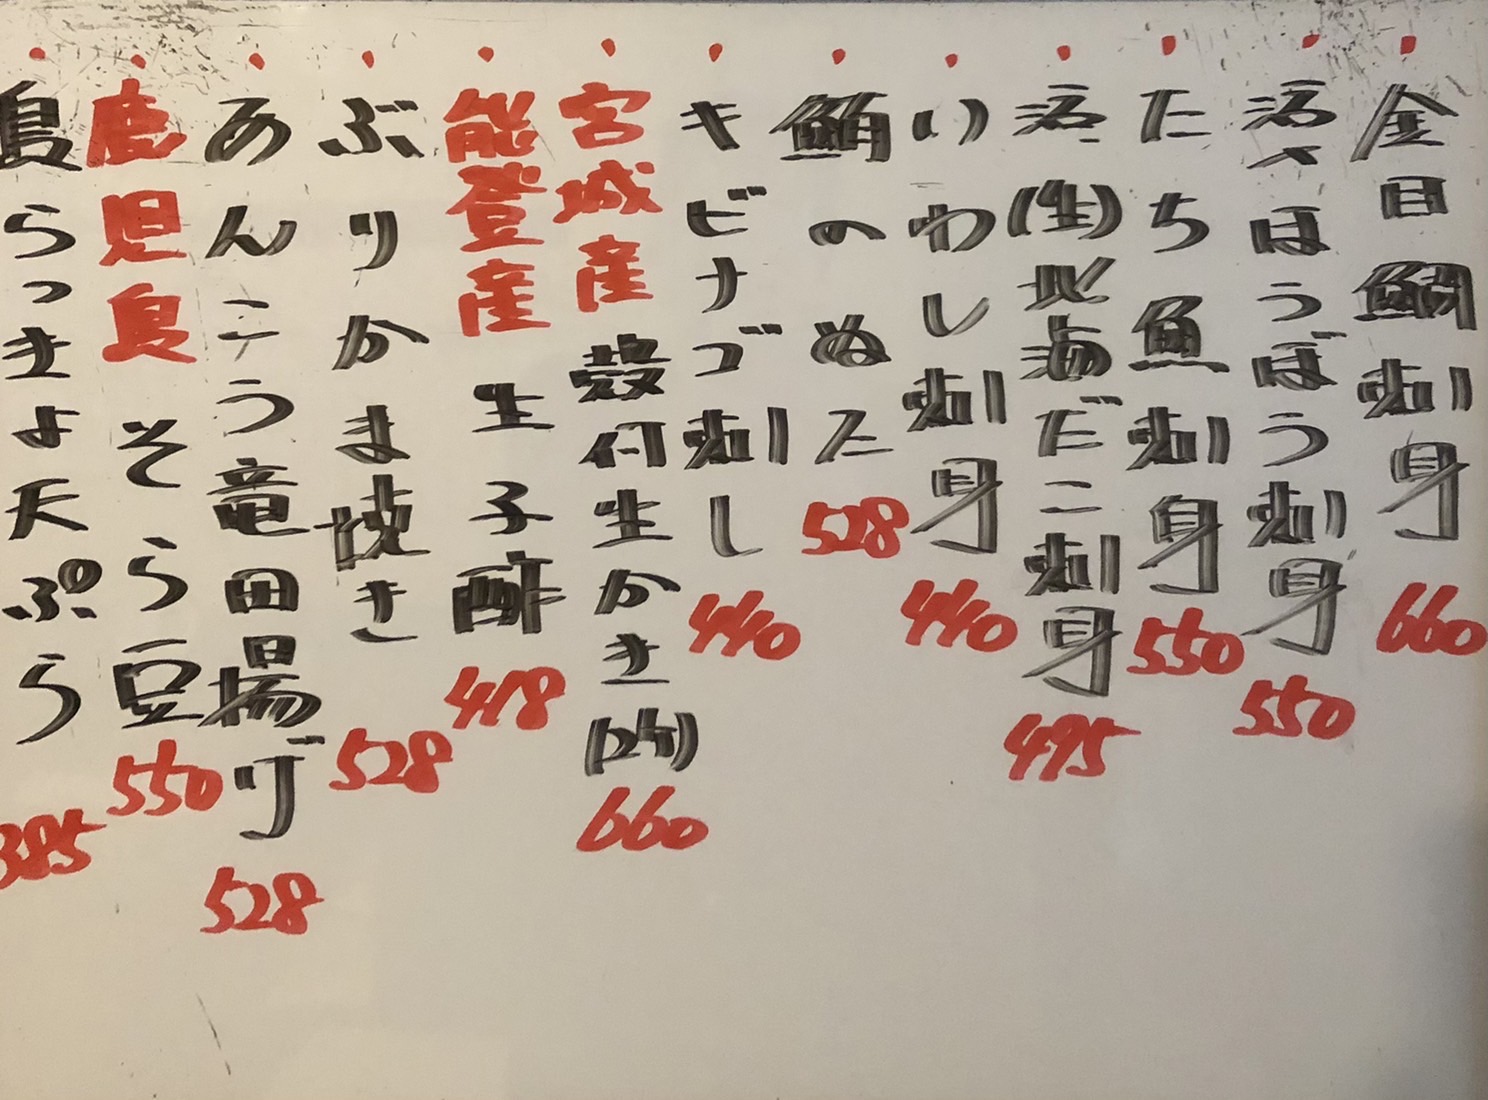 金目鯛刺身 660
活〆ほうぼう刺身 550
たち魚刺身 550
活(生)北海だこ刺身 495
いわし刺身 440
鮪のぬた 528
キビナゴ刺し 440
宮城産 殻付生かき(2ヶ) 660
能登産 生子酢 418
ぶりかま焼き 528
あんこう竜田揚げ 528
鹿児島 そら豆 550
島らっきょ天ぷら 385